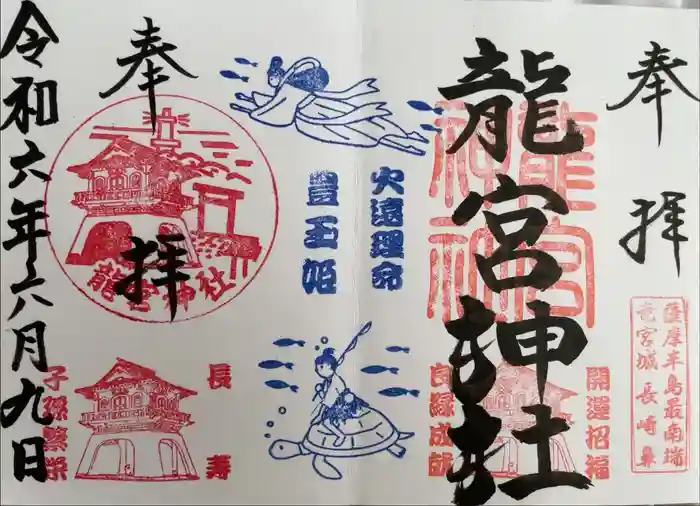 奉拝
薩摩半島最南端
竜宮城 長崎鼻
龍宮神社
龍宮神社
開運招福
良縁成就
火遠理命
豊玉姫
奉拝
龍宮神社
長寿
子孫繁栄
令和六年六月九日